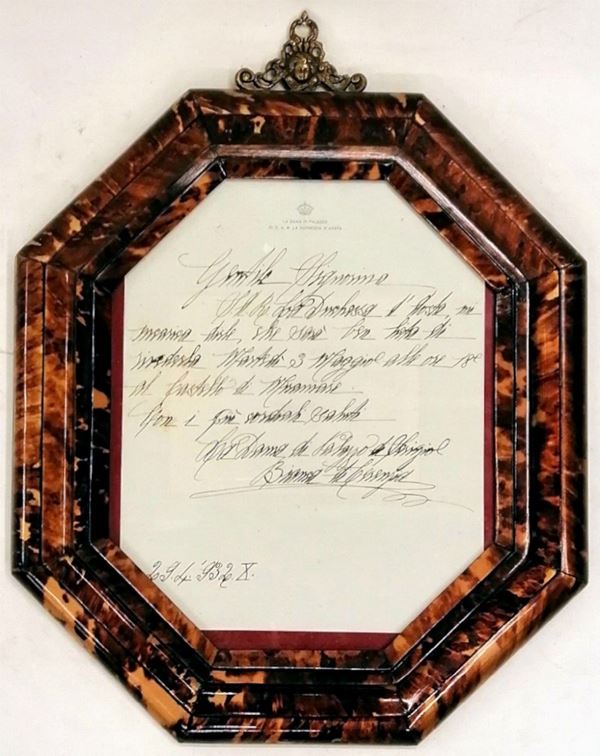 LA DAMA DI PALAZZO
DI S. A. R. LA DUCHESSA D'AOSTA
Gentile Signorina
S.A.R. La Duchessa d'Aosta mi
incarica dirle che sarà ben lieta di
vederla Martedì 3 Maggio alle ore 18
al Castello di Miramare.
Con i più cordiali saluti
La Dama di Palazzo di
Bianca
29.4.932.X.